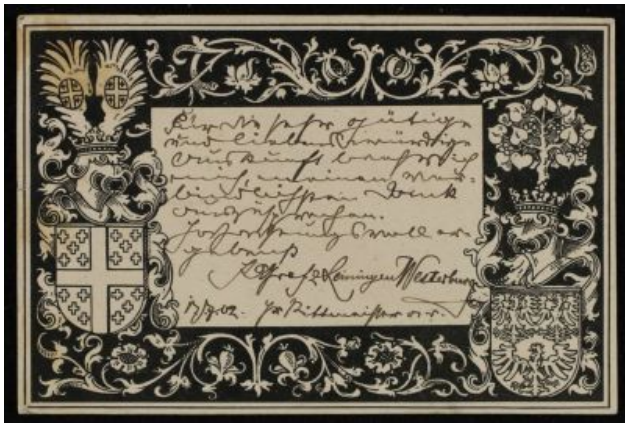 Für die sehr gütige
und liebenswürdige
Auskunft beehre ich
mich meinen ver-
bindlichsten Dank
auszusprechen.
Hochachtungsvoll er-
gebenst
KEGraf z. Leiningen Westerburg
17/7 02. Rittmeister a. D.